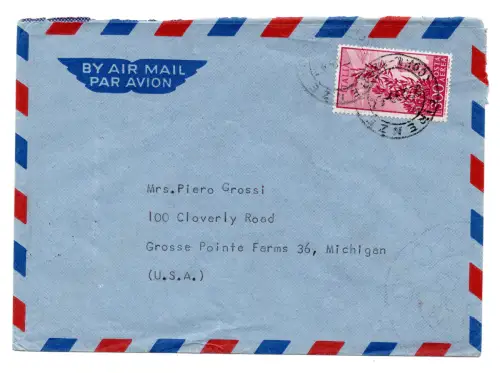 BY AIR MAIL
PAR AVION
POSTA
AEREA
300
Mrs.Piero Grossi
100 Cloverly Road
Grosse Pointe Farms 36, Michigan
(U.S.A.)